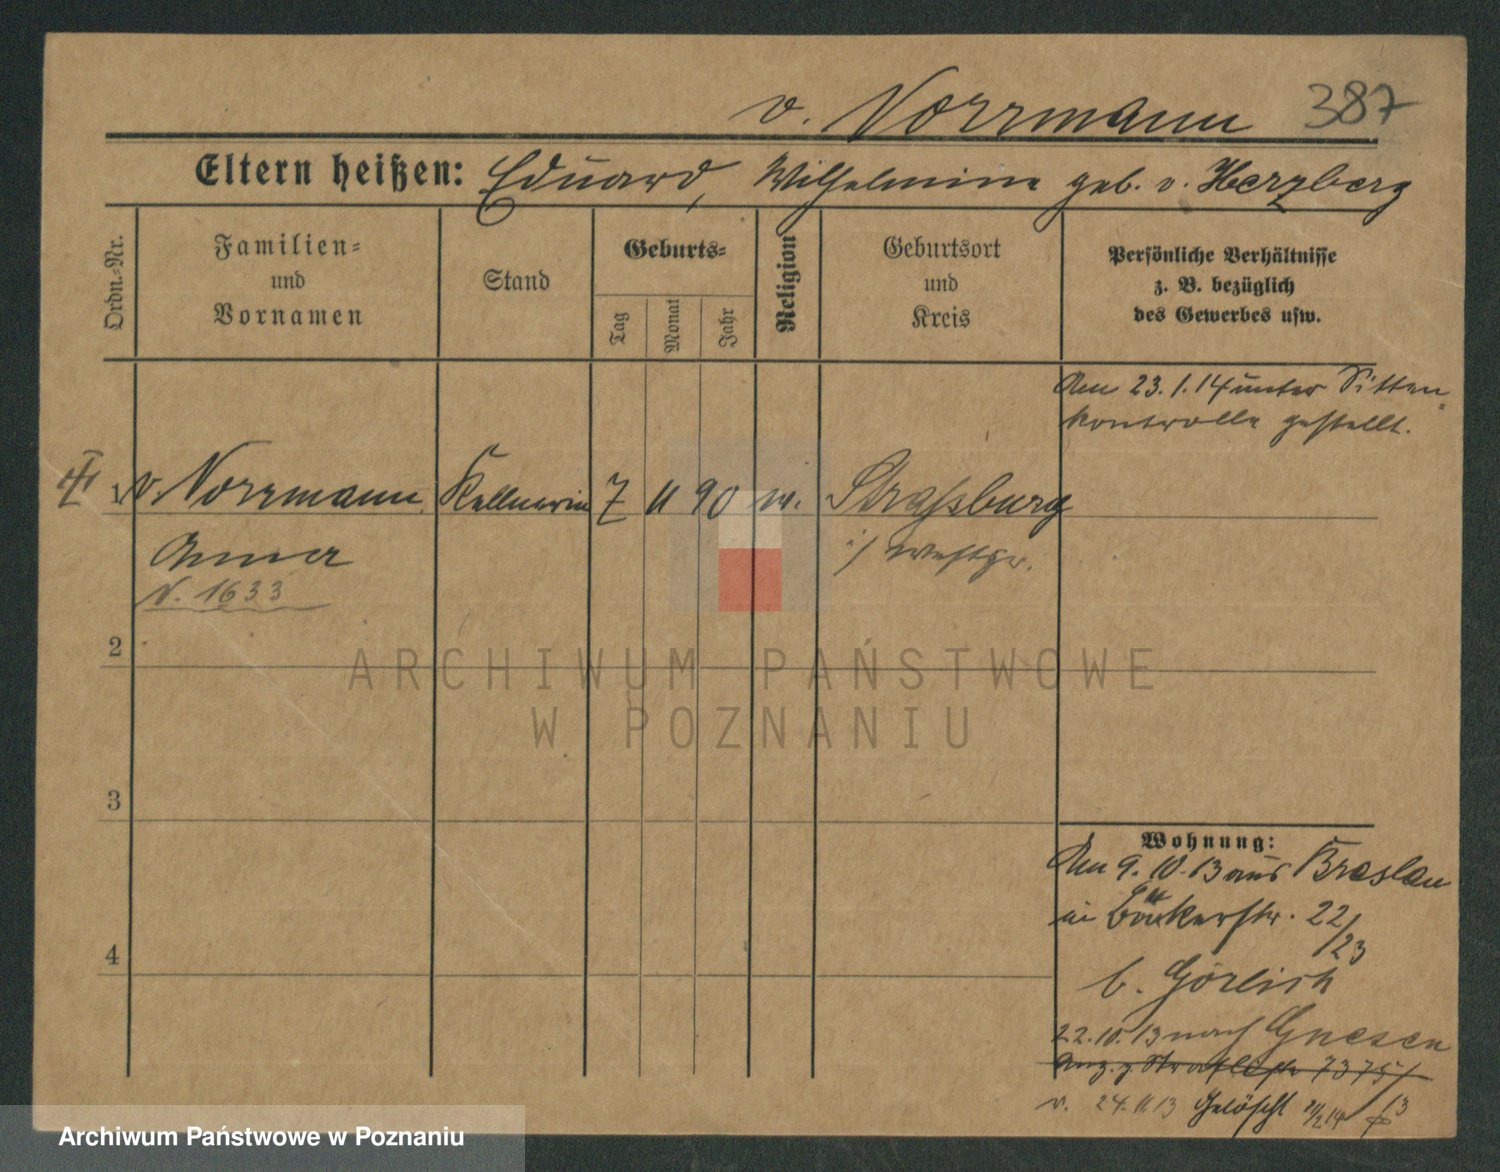 v. Norrmann 387
Eltern heißen: Eduard, Wilhelmine geb. v. Herzberg
Ordn.-Nr.
Familien-
und
Vornamen
Stand
Geburts-
Tag
Monat
Jahr
Religion
Geburtsort
und
Kreis
Persönliche Verhältnisse
z. B. bezüglich
des Gewerbes usw.
Am 23.1.14 unter Sitten-
kontrolle gestellt.
1 v. Norrmann Kellnerin 7 11 90 Straßburg
Anna i/ Westpr.
N. 1633
2
ARCHIWUM PAŃSTWOWE
W POZNANIU
3
4
Wohnung:
Am 9.10.13 aus Breslau
in Bäckerstr. 22/
23
b. Görlich
22.10.13 nach Gnesen
7375/
v. 24.11.13 Gelöscht
Archiwum Państwowe w Poznaniu